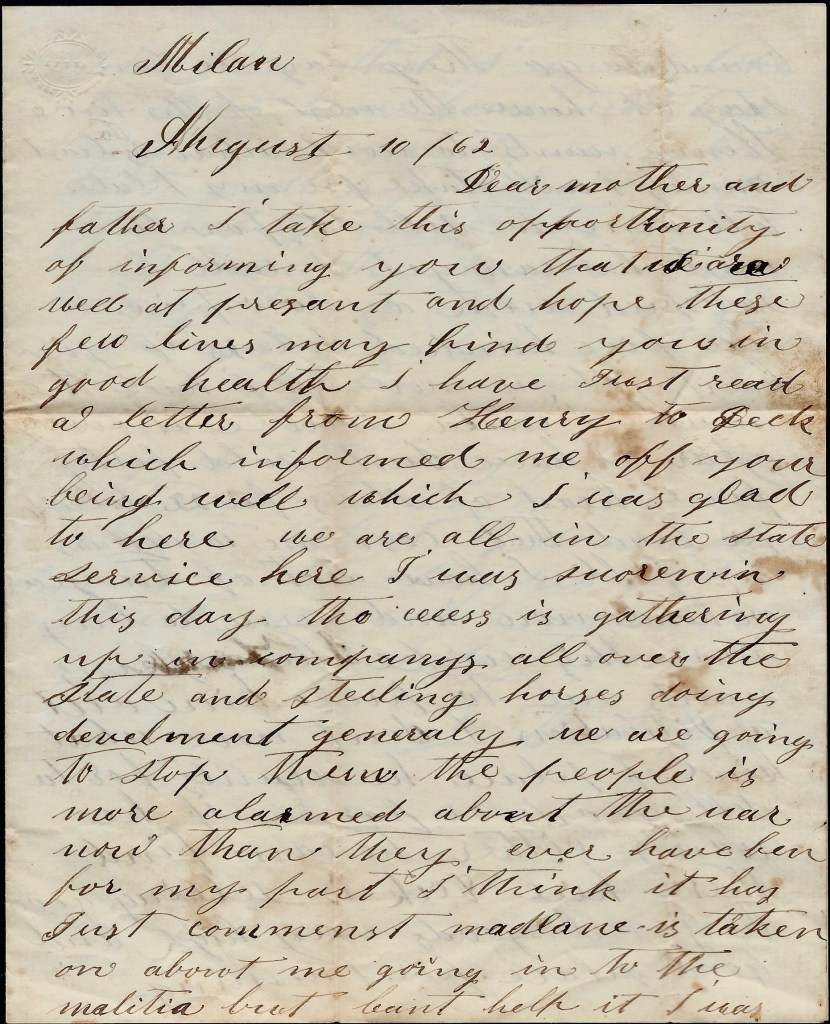 Milan
August 10 / 62
Dear mother and
father I take this opportronity
of informing you that we are
well at presant and hope these
few lines may find you in
good health I have Just read
a letter from Henry to Deck
which informed me off your
being well which I was glad
to here we are all in the state
service here I was suorewin
this day the cecess is gathering
up in companys all over the
state and steeling horses doing
develment generaly we are going
to stop them the people is
more alarmed about the war
now than they ever have ben
for my part I think it has
Just commenst madlane is taken
on about me going in to the
malitia but cant help it I was